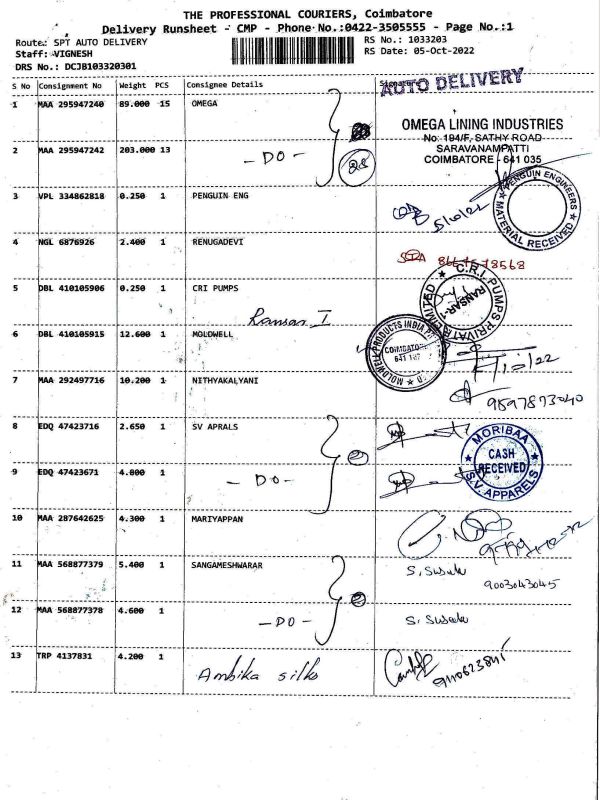 THE PROFESSIONAL COURIERS, Coimbatore
Delivery Runsheet - CMP - Phone No.:0422-3505555 - Page No.:1
Route: SPT AUTO DELIVERY
Staff: VIGNESH
DRS No.: DCJB103320301
RS No.: 1033203
RS Date: 05-Oct-2022
S No Consignment No Weight PCS Consignee Details Signature
AUTO DELIVERY
1 MAA 295947240 89.000 15 OMEGA
OMEGA LINING INDUSTRIES
No: 194/F, SATHY ROAD
SARAVANAMPATTI
COIMBATORE - 641 035
2 MAA 295947242 203.000 13 - DO - 28
3 VPL 334862818 0.250 1 PENGUIN ENG
5/10/22
PENGUIN ENGINEERS
MATERIAL RECEIVED
4 NGL 6876926 2.400 1 RENUGADEVI
5 DBL 410105906 0.250 1 CRI PUMPS
Ransar I
C.R.I. PUMPS PRIVATE LIMITED
RANSAR-1
6 DBL 410105915 12.600 1 MOLDWELL
MOLDWELL PRODUCTS INDIA
COIMBATORE
7 MAA 292497716 10.200 1 NITHYAKALYANI
9597873040
8 EDQ 47423716 2.650 1 SV APRALS
2
MORIBAA
CASH
RECEIVED
S.V. APPARELS
9 EDQ 47423671 4.800 1 - DO -
10 MAA 287642625 4.300 1 MARIYAPPAN
11 MAA 568877379 5.400 1 SANGAMESHWARAR
9003043045
2
12 MAA 568877378 4.600 1 - DO -
13 TRP 4137831 4.200 1 Ambika silks